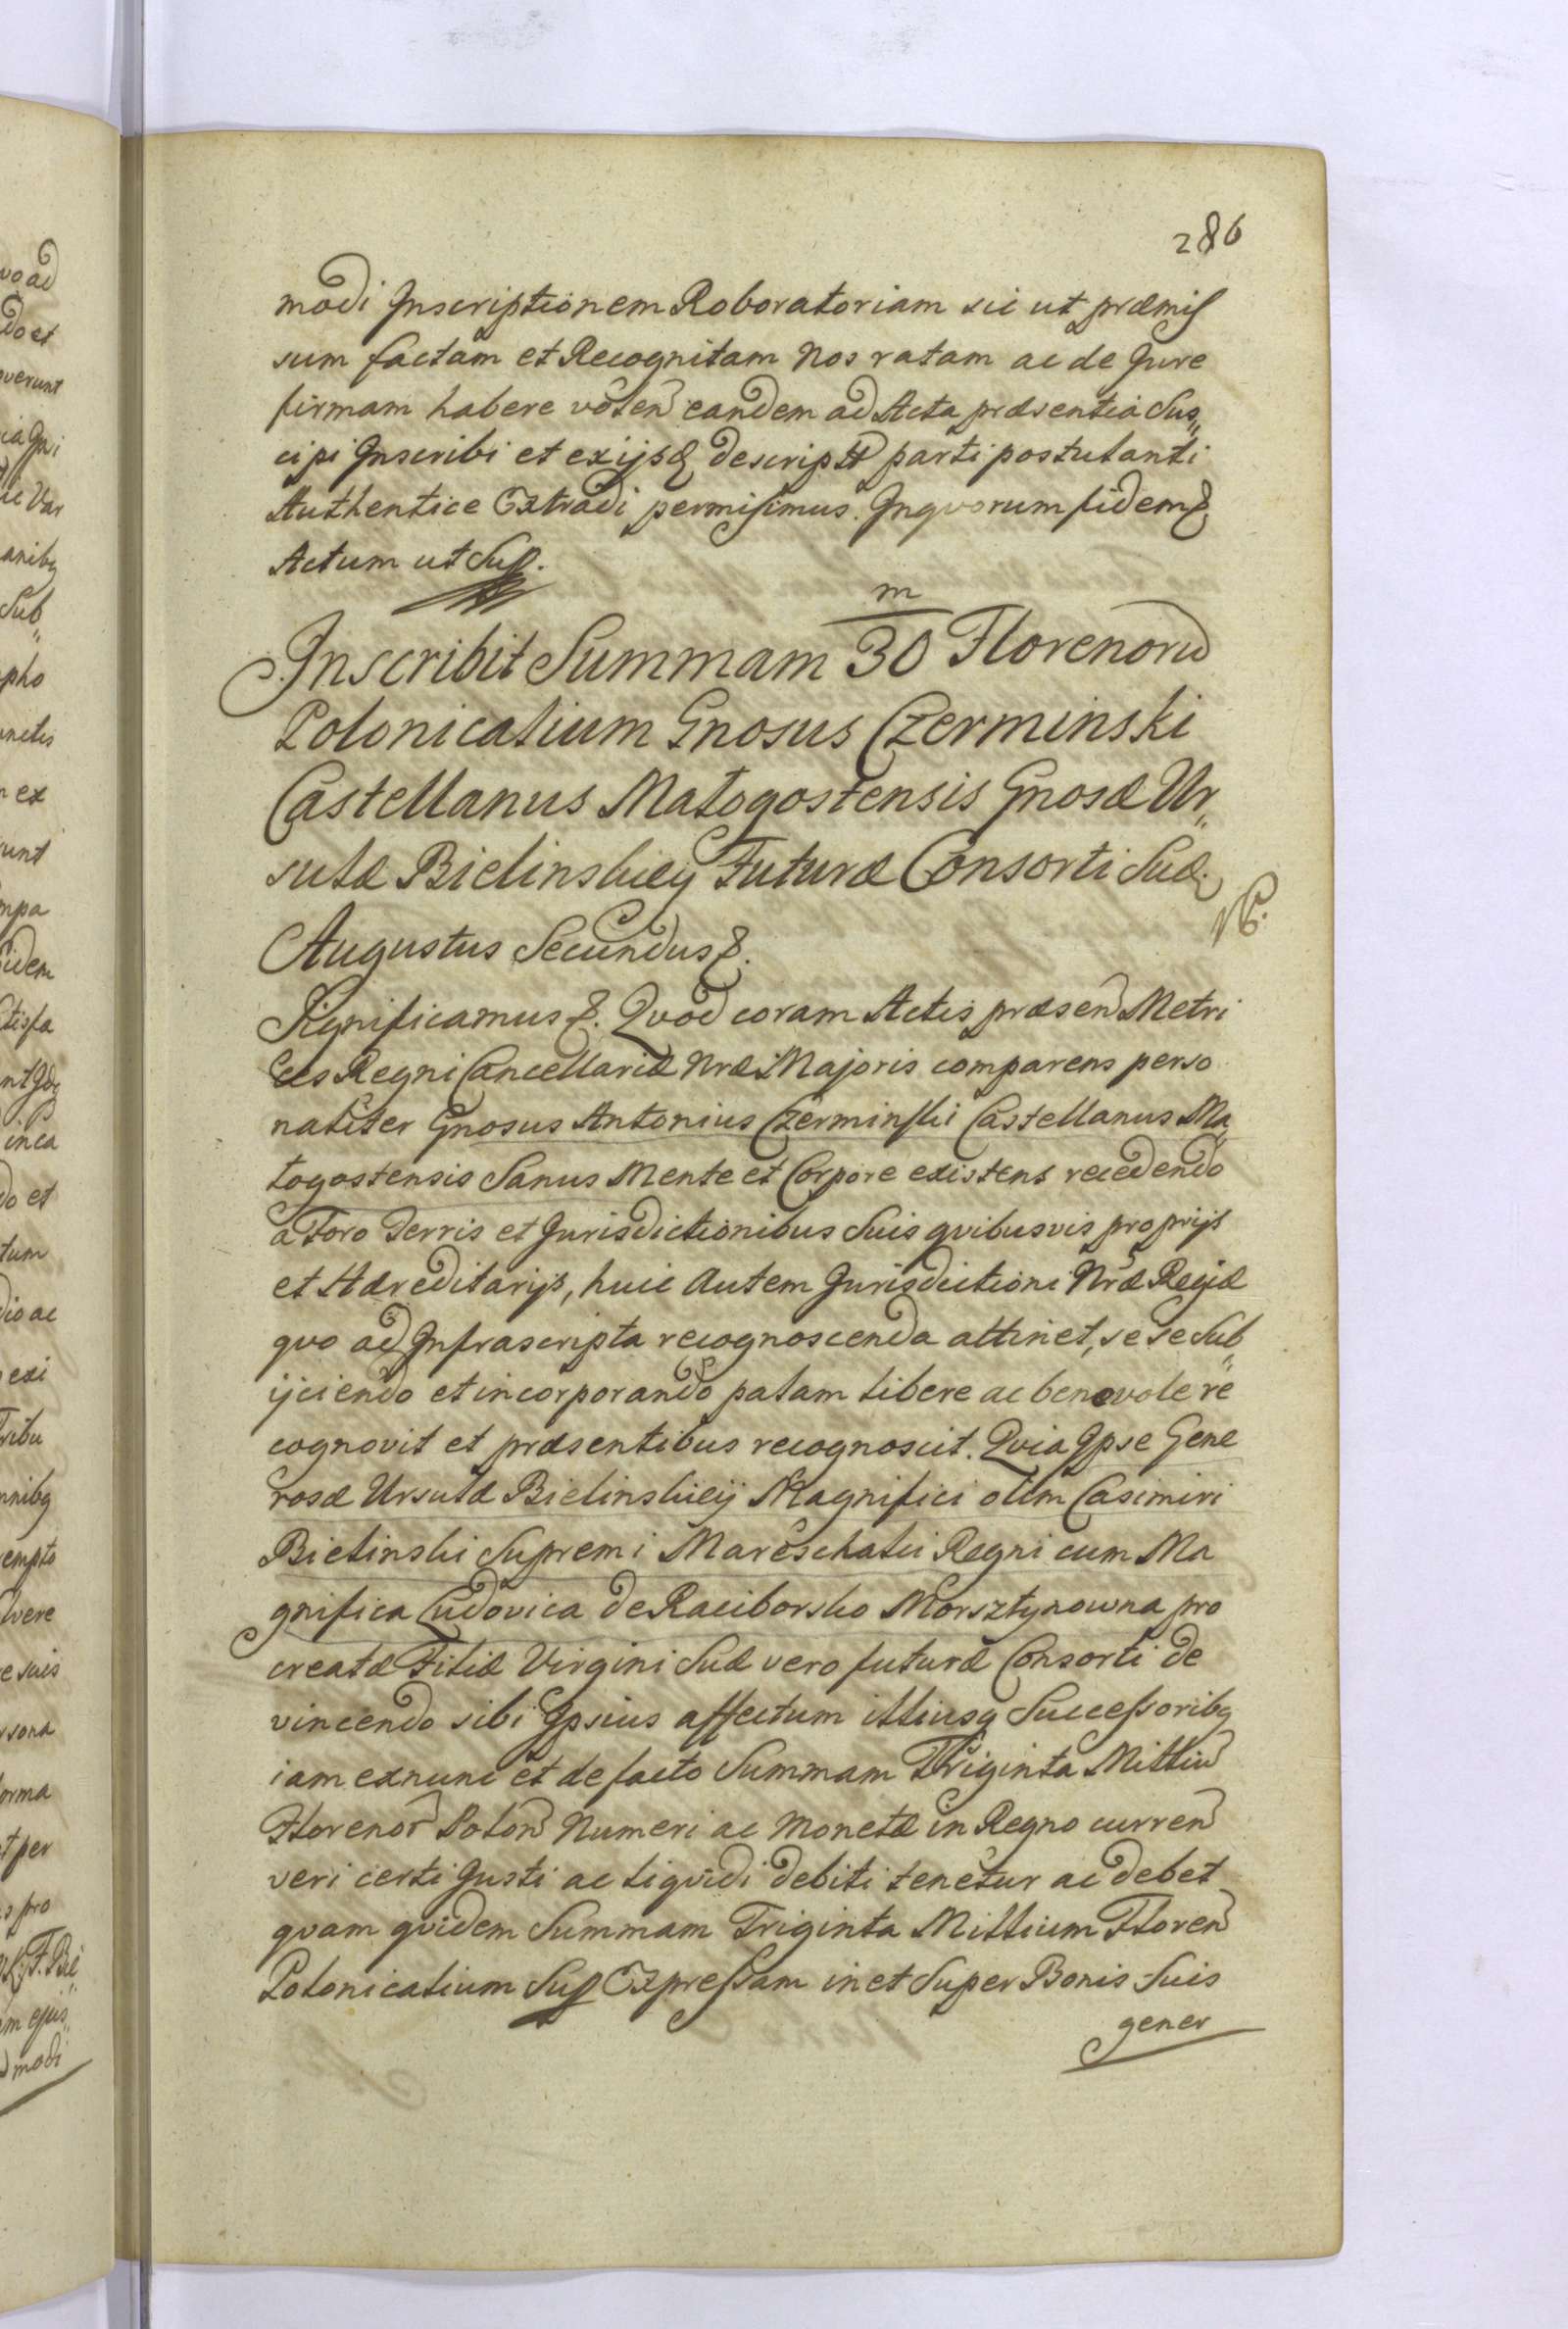 286
modi Inscriptionem Roboratoriam sic ut præmis
sum factam et Recognitam Nos ratam ac de Jure
firmam habere volen eandem ad Acta præsentia Sus„
cipi Inscribi et ex ijsd descriptt parti postulanti
Authentice Extradi permisimus. In qvorum fidem &.
Actum ut Sup.
m
Inscribit Summam 30 Florenorū
Polonicalium Gnosus Czerminski
Castellanus Małogostensis Gnosæ Ur„
sulæ Bielinskiey Futuræ Consorti Suæ.
NB.
Augustus Secundus &.
Significamus &. Qvod coram Actis præsen Metri
ces Regni Cancellariæ Nræ Majoris comparens perso
naliter Gnosus Antonius Czerminski Castellanus Ma„
łogostensis Sanus Mente et Corpore existens recedendo
a Foro Terris et Jurisdictionibus Suis qvibusvis proprijs
et Hæreditarijs, huic Autem Jurisdictioni Nræ Regiæ
qvo ad Infrascripta recognoscenda attinet, se se Sub„
ijciendo et incorporando palam libere ac benevole re
cognovit et præsentibus recognoscit. Qvia Ipse Gene
rosæ Ursulæ Bielinskieÿ Magnifici olim Casimiri
Bielinski Supremi Mareschalci Regni cum Ma
gnifica Ludovica de Raciborsko Morsztynowna pro
creatæ Filiæ Virgini Suæ vero futuræ Consorti de
vincendo sibi Ipsius affectum illiusq Successoribq
iam exnunc et de facto Summam Triginta Milliū
Florenor Polon Numeri ac Monetæ in Regno curren
veri certi Justi ac liqvidi debiti tenetur ac debet
qvam qvidem Summam Triginta Millium Floren
Polonicalium Sup Expressam in et Super Bonis Suis
gener